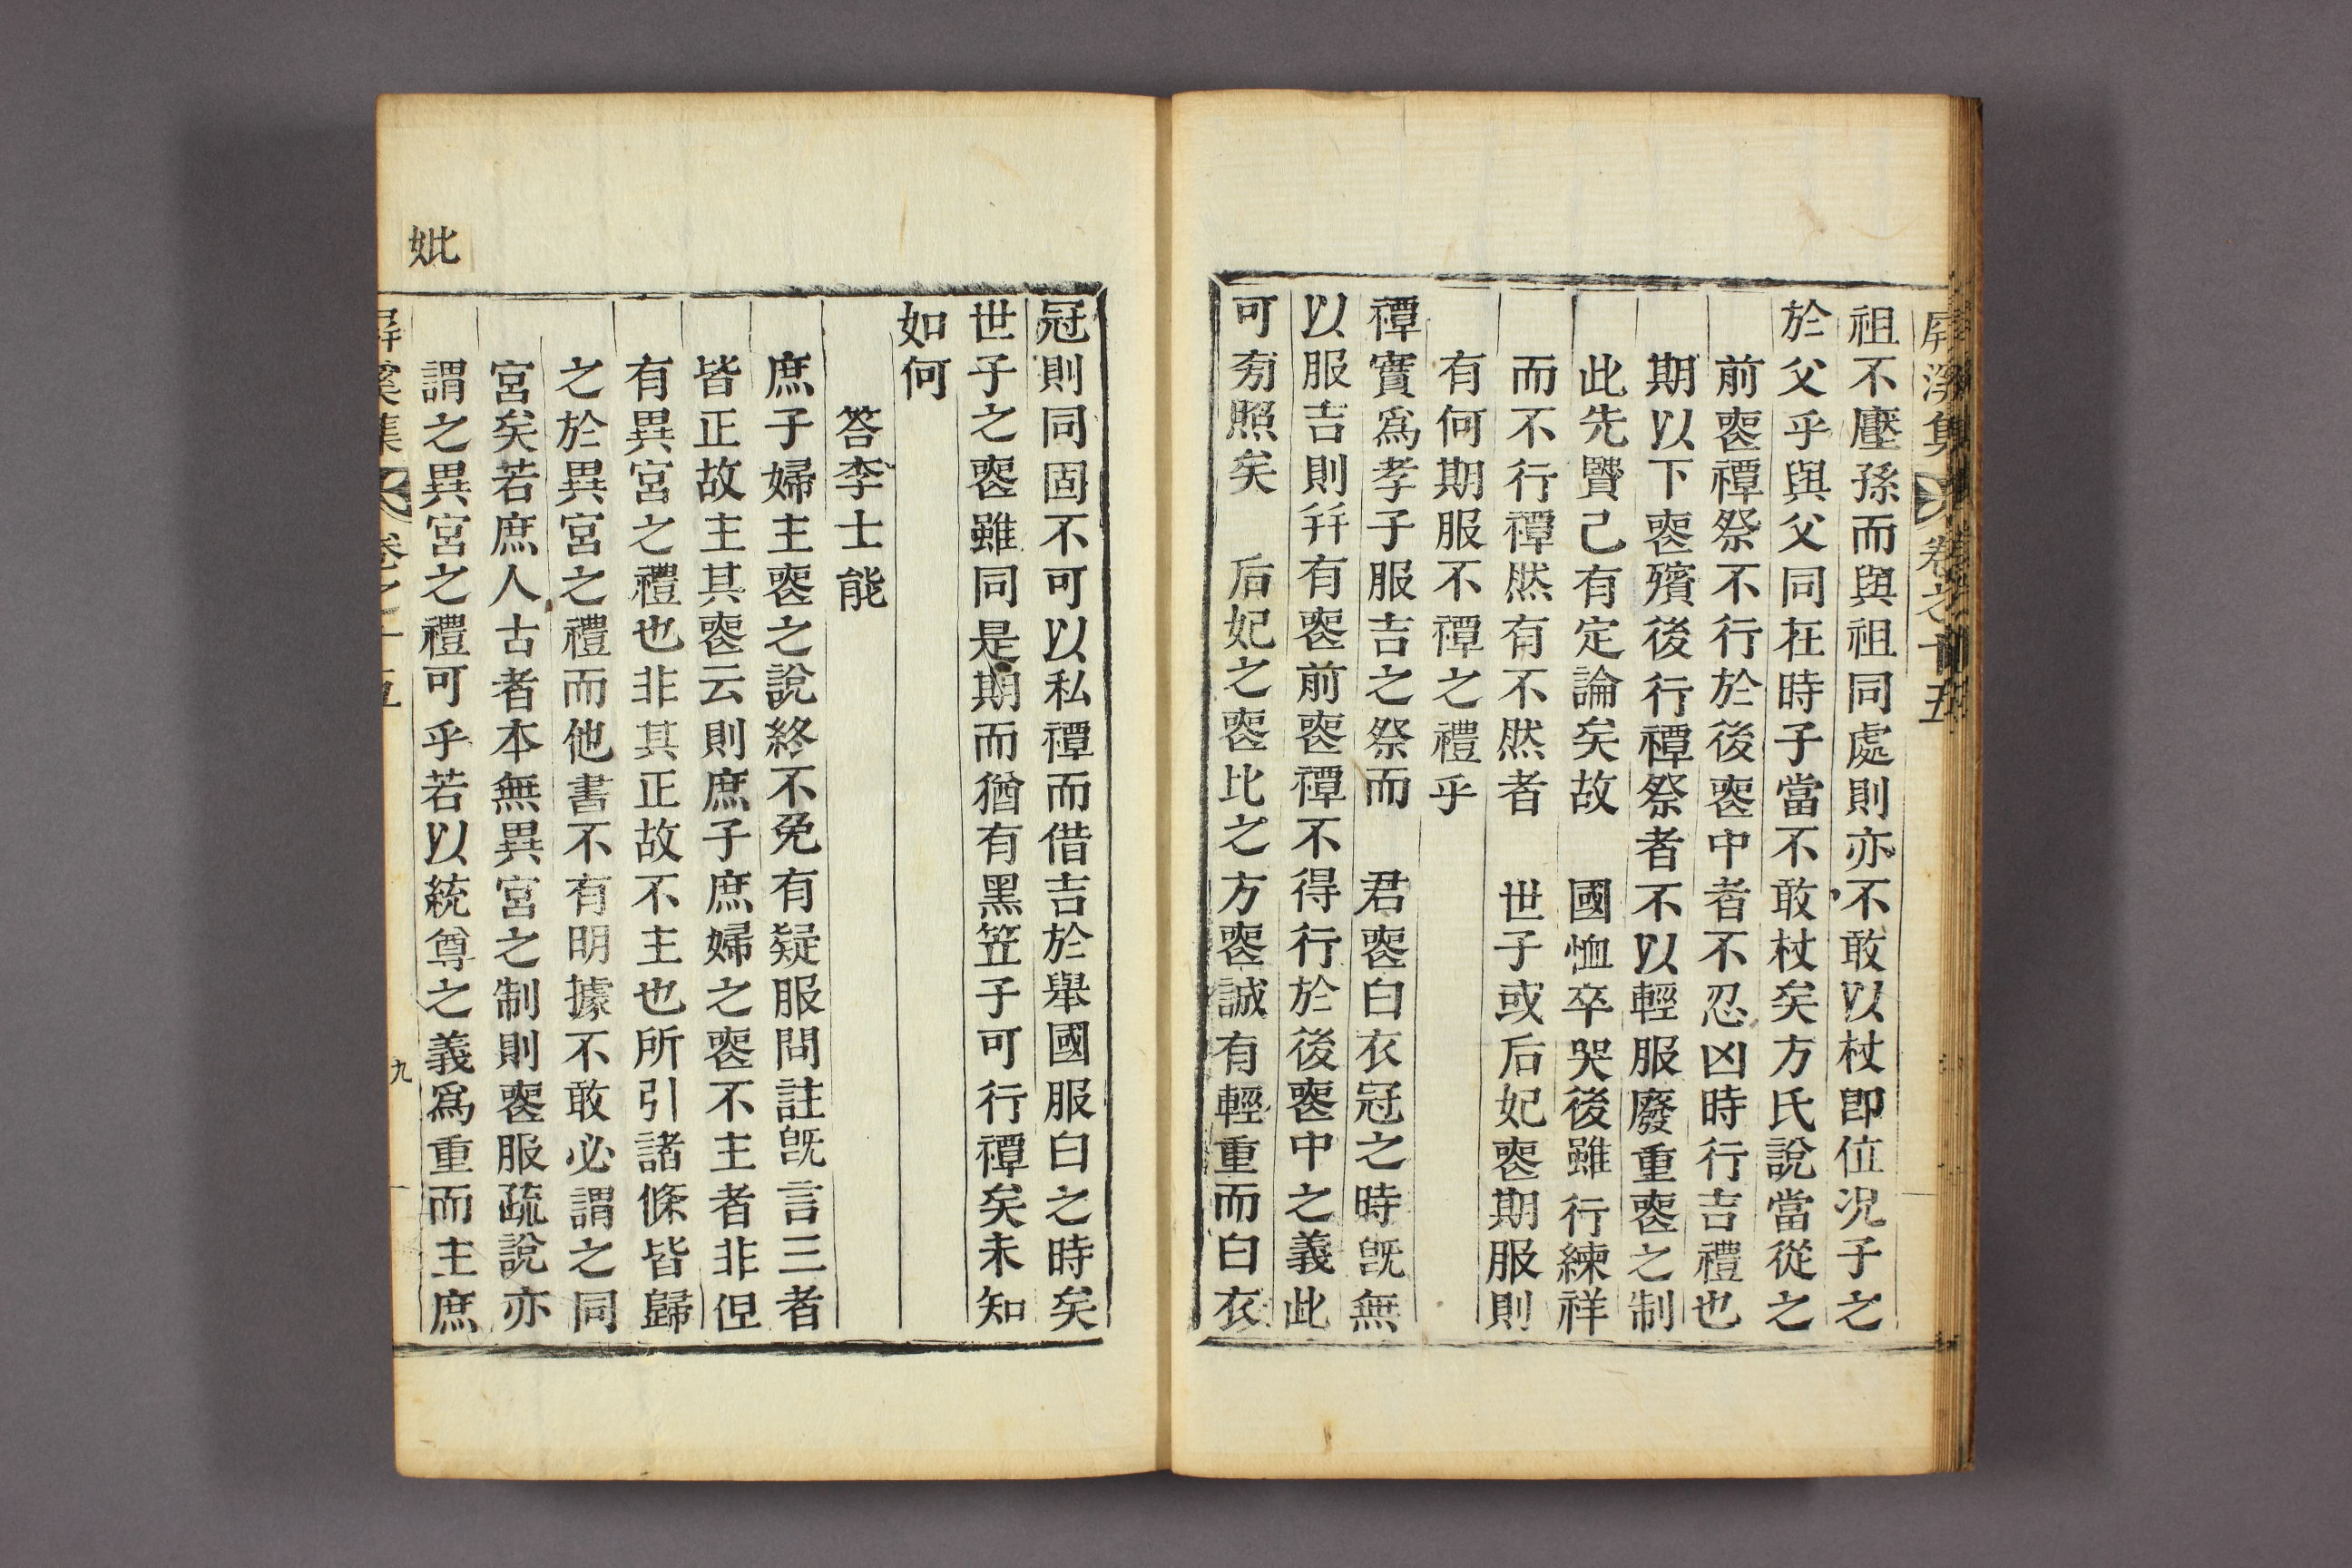 屛溪集 卷之十五
祖不壓孫而與祖同處則亦不敢以杖卽位况子之
於父乎與父同在時子當不敢杖矣方氏說當從之
前喪禫祭不行於後喪中者不忍凶時行吉禮也
期以下喪殯後行禫祭者不以輕服廢重喪之制
此先賢已有定論矣故 國恤卒哭後雖行練祥
而不行禫然有不然者 世子或后妃喪期服則
有何期服不禫之禮乎
禫實爲孝子服吉之祭而 君喪白衣冠之時旣無
以服吉則幷有喪前喪禫不得行於後喪中之義此
可旁照矣 后妃之喪比之方喪誠有輕重而白衣
冠則同固不可以私禫而借吉於舉國服白之時矣
世子之喪雖同是期而猶有黑笠子可行禫矣未知
如何
答李士能
庶子婦主喪之說終不免有疑服問註旣言三者
皆正故主其喪云則庶子庶婦之喪不主者非但
有異宮之禮也非其正故不主也所引諸條皆歸
之於異宮之禮而他書不有明據不敢必謂之同
宮矣若庶人古者本無異宮之制則喪服疏說亦
謂之異宮之禮可乎若以統尊之義爲重而主庶
屛溪集 卷之十五 九
妣